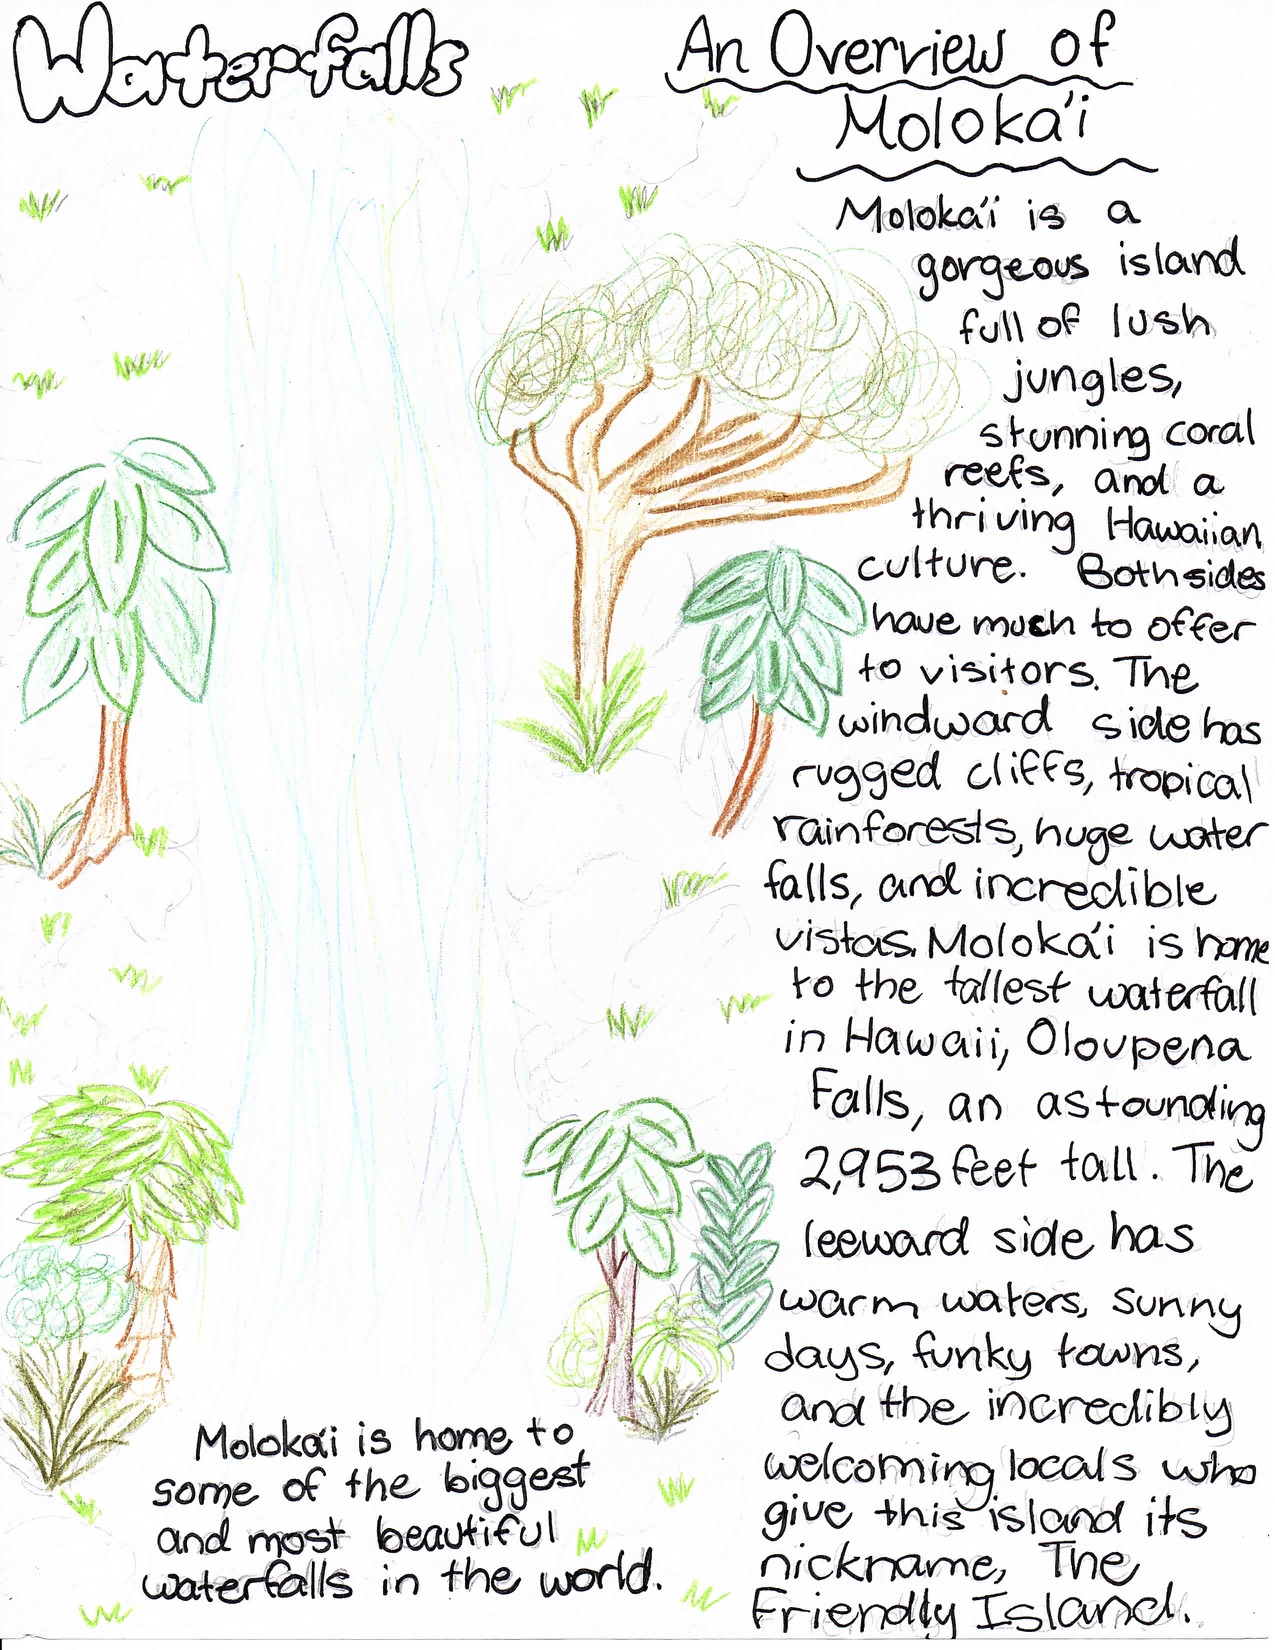 Waterfalls
An Overview of
Moloka'i
Moloka'i is a
gorgeous island
full of lush
jungles,
stunning coral
reefs, and a
thriving Hawaiian
culture. Both sides
have much to offer
to visitors. The
windward side has
rugged cliffs, tropical
rainforests, huge water
falls, and incredible
vistas. Moloka'i is home
to the tallest waterfall
in Hawaii, Oloupena
Falls, an astounding
2,953 feet tall. The
leeward side has
warm waters, sunny
days, funky towns,
and the incredibly
welcoming locals who
give this island its
nickname, The
Friendly Island.
Moloka'i is home to
some of the biggest
and most beautiful
waterfalls in the world.